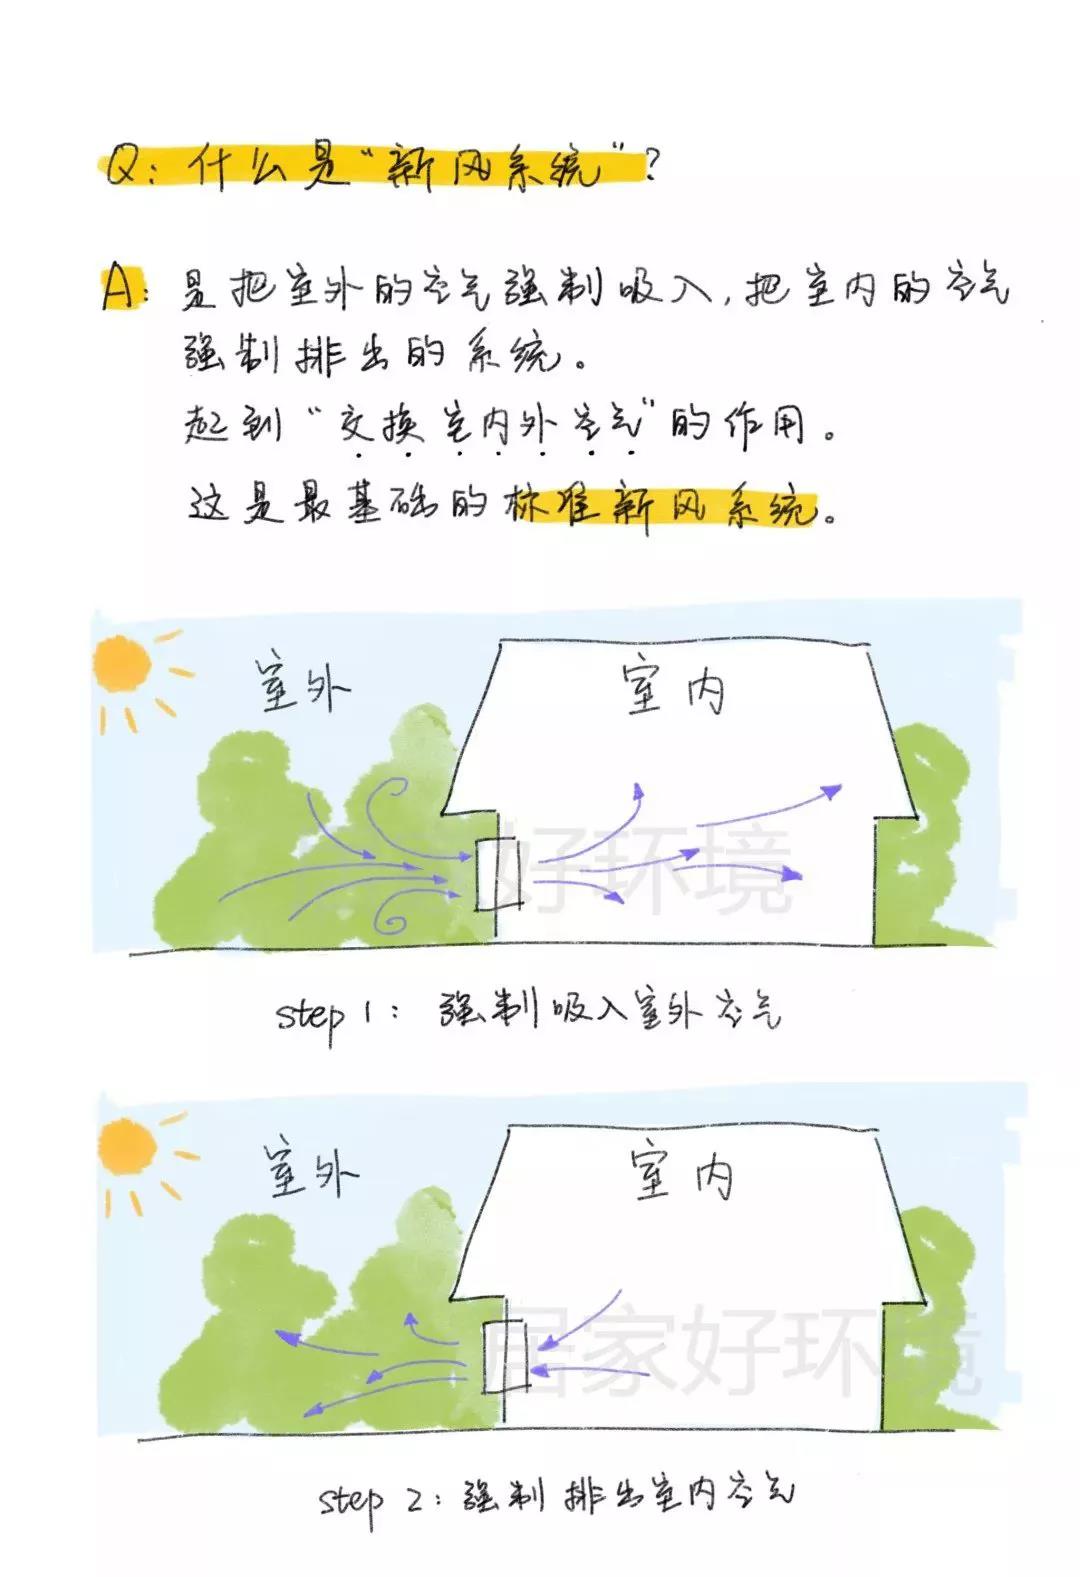 Q: 什么是“新风系统”?
A: 是把室外的空气强制吸入,把室内的空气
强制排出的系统。
起到“交换室内外空气”的作用。
这是最基础的标准新风系统。
室外
室内
好环境
step 1: 强制吸入室外空气
室外
室内
居家好环境
step 2: 强制排出室内空气